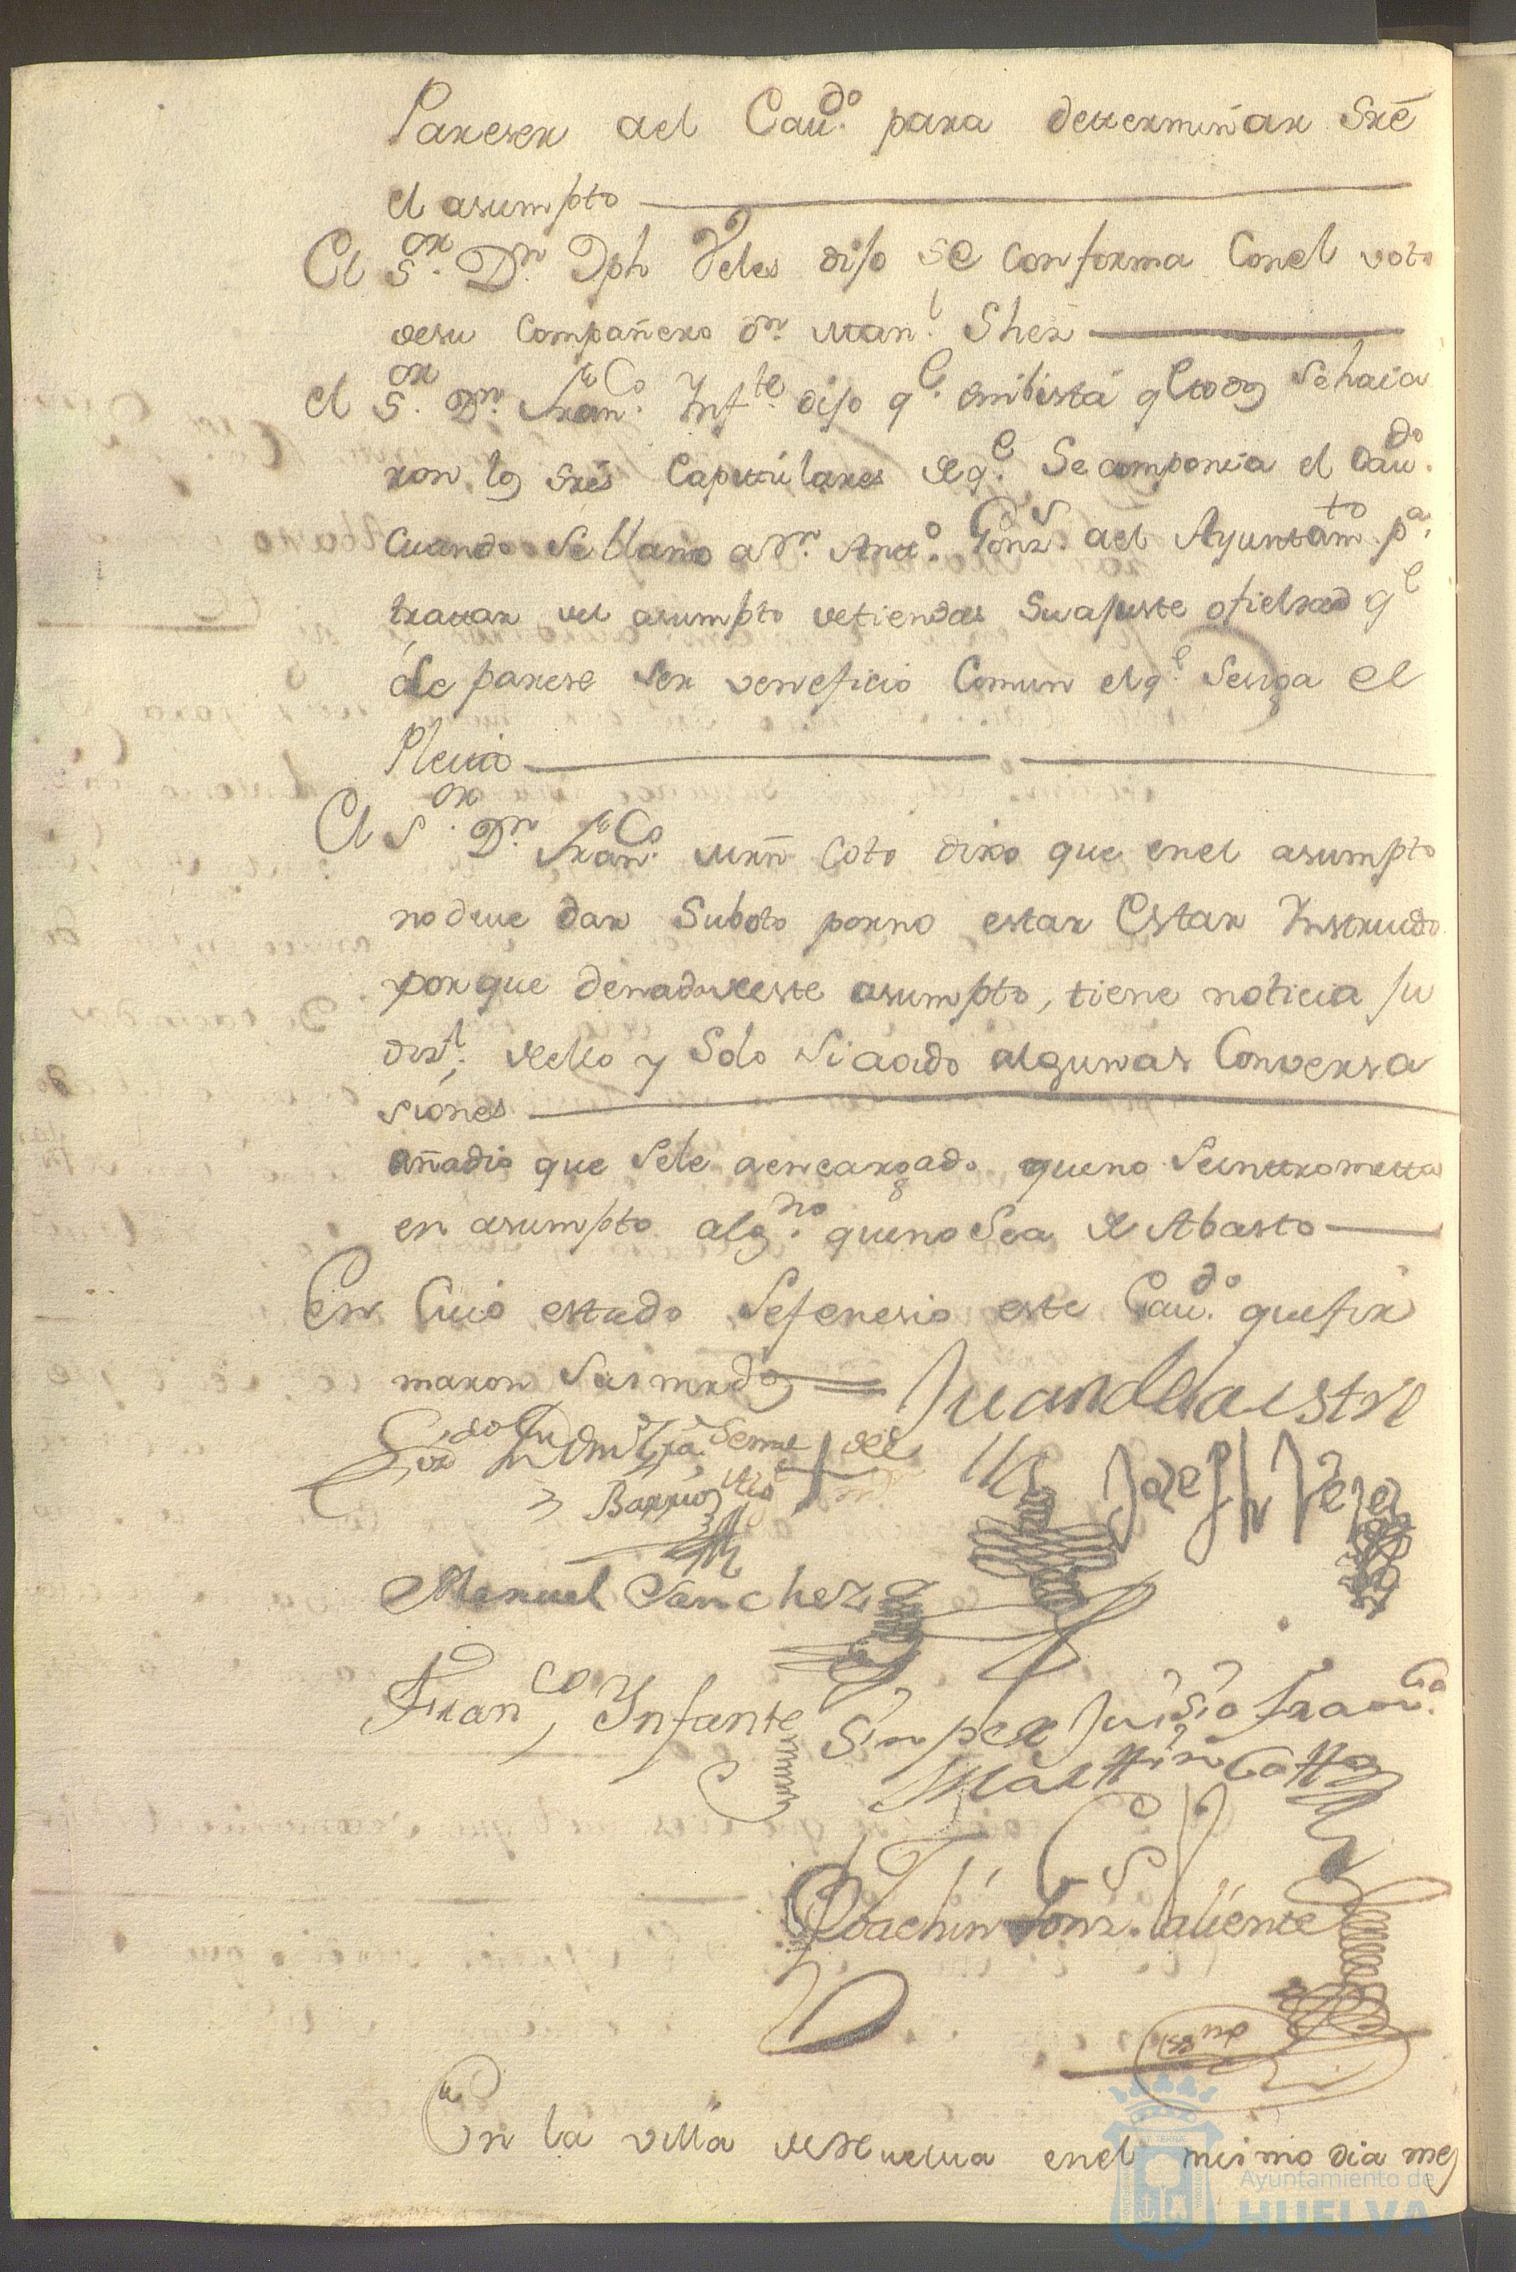 Pareser ael Cauᵈᵒ. para determinar Sre
el asumpto
El Sᵒʳ. Dⁿ Jph Veles dijo se conforma Conel voto
desu Compañero Dⁿ. Manˡ. Shez
el Sᵒʳ. Dⁿ. Franᶜᵒ. Ynfᵗᵉ. dijo qᵉ. enbista qᵉ todos
ron los Sres Capitulares deqᵉ. Secomponia el Cauᵈᵒ.
Cuando Se llamo a Dⁿ. Antᵒ. Gonzˢ. ael Ayuntamᵗᵒ. pᵃ.
tratar del asumpto detiendas Suajuste ofieldad qᵉ
le parese Ser veneficio Comun elqᵉ. Seusiga el
Pleito
El Sᵒʳ. Dⁿ. Franᶜᵒ. Mrn Coto dixo que enel asumpto
nodeue dar Suboto porno estar Estar Ynstruido
porque denadadeeste asumpto, tiene noticia ju
dizˡ. dello y Solo Si aoido algunas Conversa
siones
añadio que Sele aencargado queno Seinttrometta
en asumpto algⁿᵒ. queno Sea de Abasto
En Cuio estado Sefenesio este Cauᵈᵒ. quefir
maron Sus mrdˢ
Juan de la
Barrios
Joseph Velez
Manuel Sanchez
Franᶜᵒ Ynfante
Sin perjuisio franᶜᵒ.
Martin Cotto
Joachin Gonzˢ. Valiente
En la villa deHuelua enel mismo dia mes
Ayuntamiento de
HUELVA